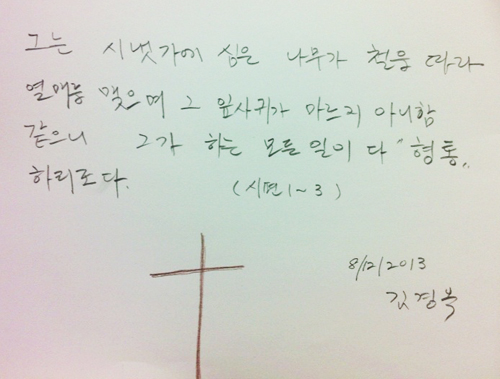 그는 시냇가에 심은 나무가 철을 따라
열매를 맺으며 그 잎사귀가 마르지 아니함
같으니 그가 하는 모든 일이 다 "형통"
하리로다.
(시편 1~3)
8/12/2013
김경복